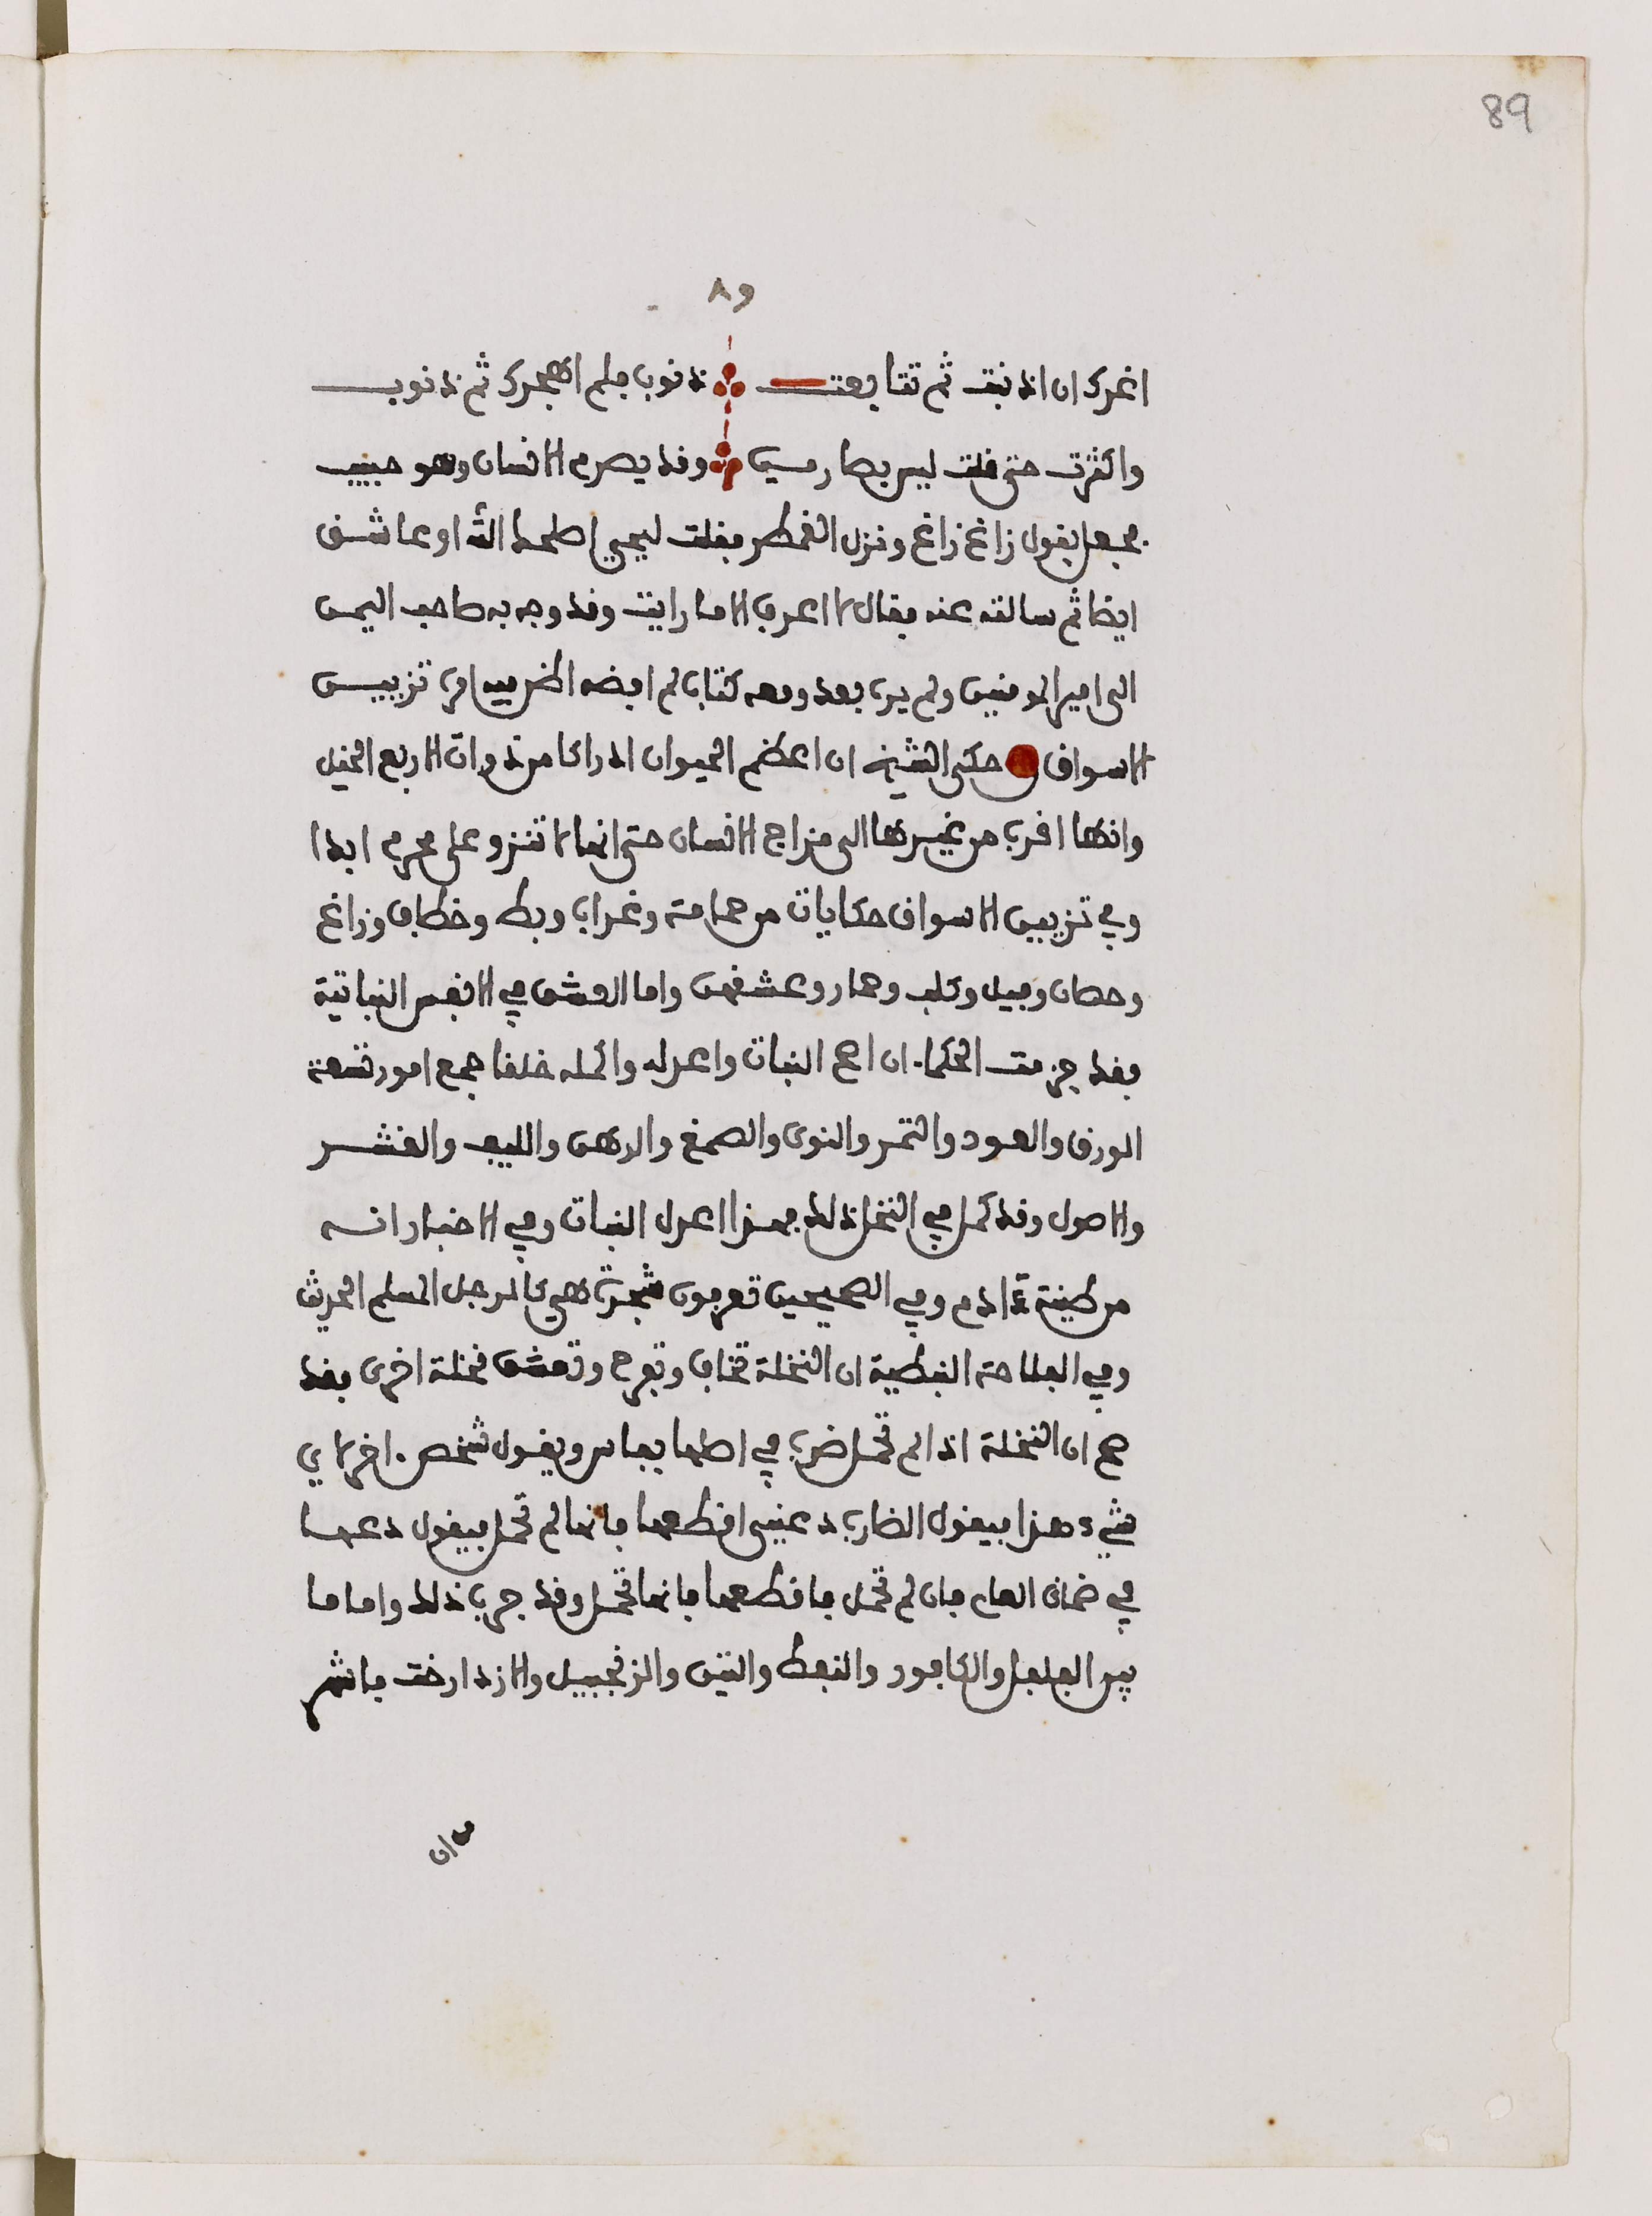 89
٨٩
اغرك ان اذنبت ثم تتابعت ذنوب فلم اهجرك ثم ذنوب
واكثرت حتى قلت ليس بصارمي وقد يصرم الانسان وهو حبيب
فجعل يقول زاغ زاغ ونزل القمطر فقلت ليحيى اصلحك الله اوعاشق
ايضا ثم سالته عنه فقال لا اعرف الا ما رايت وقد وجه به صاحب اليمن
الى امير المومنين ولم يره بعد ومعه كتاب لم افضه انظر فيه في تزيين
الاسواق حكى الشيخ ان اعظم الحيوان ادراكا من ذوات الاربع الخيل
وانها اقرب من غيرها الى مزاج الانسان حتى انها لا تنزو على محرم ابدا
وفي تزيين الاسواق حكايات من حمامة وغراب وبط وخطاف وزاغ
وحصان وفيل وكلب وحمار وعشقهن واما العشق في الانفس النباتية
فقد جزمت الحكما ان اصح النبات واعدله واكمله خلقا جمع امور تسعة
الورق والعود والثمر والنوى والصمغ والدهن والليف والقشر
والاصول وقد كمل في النخل ذلك فهذا اعدل النبات وفي الاخبار انه
من طينة ءادم وفي الصحيحين تعرفون شجرة هي كالرجل المسلم الحديث
وفي الفلاحة النبطية ان النخلة تخاف وتفرح وتعشق نخلة اخرى فقد
صح ان النخلة اذا لم تحمل ضرب في اصلها بفاس ويقول شخص اخر لاي
شيء هذا فيقول الضارب دعني اقطعها فانها لم تحمل فيقول دعها
في ضماني العام فان لم تحمل فاقطعها فانها تحمل وقد جرب ذلك واما ما
بين الفلفل والكافور والنفط والتين والزنجبيل والازدارخت فاشهر
من ان